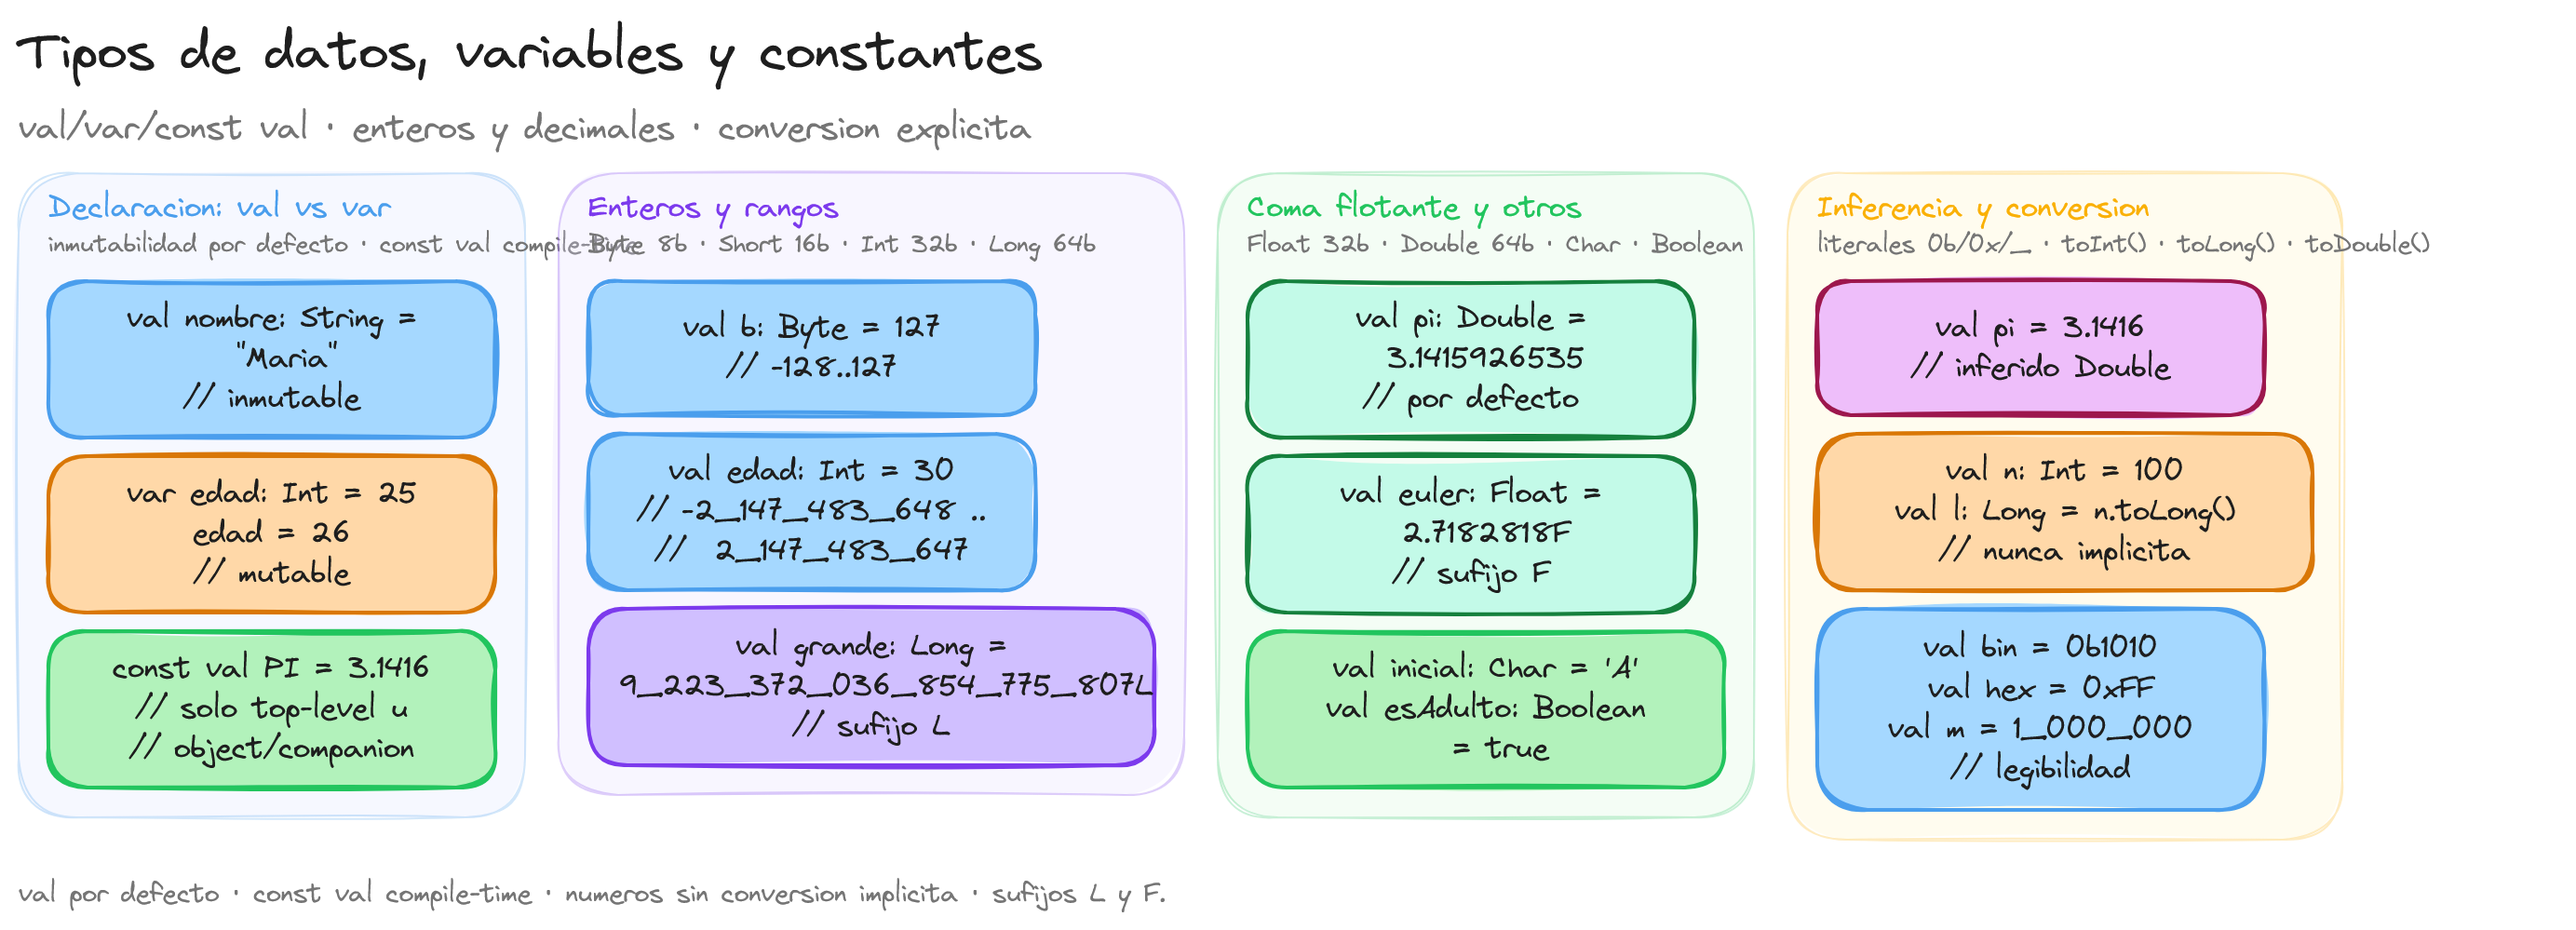 Tipos de datos, variables y constantes
val/var/const val · enteros y decimales · conversion explicita
Declaracion: val vs var
inmutabilidad por defecto · const val compile-time
val nombre: String =
"Maria"
// inmutable
var edad: Int = 25
edad = 26
// mutable
const val PI = 3.1416
// solo top-level u
// object/companion
Enteros y rangos
Byte 8b · Short 16b · Int 32b · Long 64b
val b: Byte = 127
// -128..127
val edad: Int = 30
// -2_147_483_648 ..
// 2_147_483_647
val grande: Long =
9_223_372_036_854_775_807L
// sufijo L
Coma flotante y otros
Float 32b · Double 64b · Char · Boolean
val pi: Double =
3.1415926535
// por defecto
val euler: Float =
2.7182818F
// sufijo F
val inicial: Char = 'A'
val esAdulto: Boolean
= true
Inferencia y conversion
literales 0b/0x/_ · toInt() · toLong() · toDouble()
val pi = 3.1416
// inferido Double
val n: Int = 100
val l: Long = n.toLong()
// nunca implicita
val bin = 0b1010
val hex = 0xFF
val m = 1_000_000
// legibilidad
val por defecto · const val compile-time · numeros sin conversion implicita · sufijos L y F.